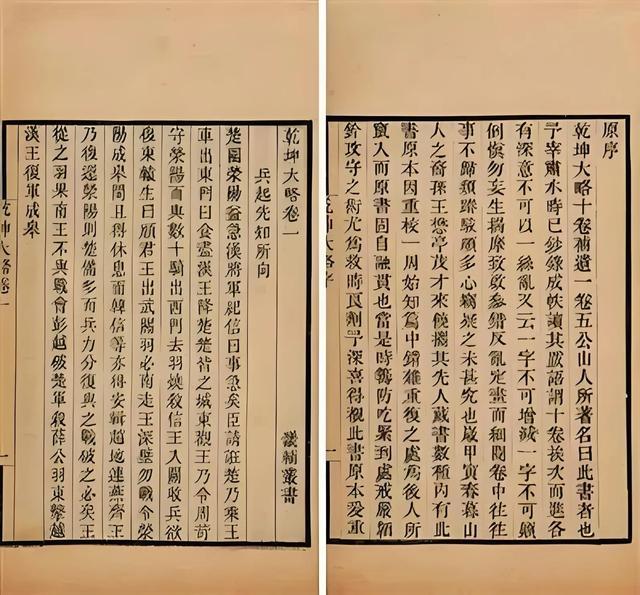 原序
乾坤大略十卷補遺一卷五公山人所著名曰此書者也
予宰肅水時已鈔錄成帙讀其跋語謂十卷挨次而進各
有深意不可以一絲亂又云一字不可增減一字不可顛
倒慎勿妄生揣摩致啟參錯反亂定畫而細閱卷中往往
事不歸類駁頗多心竊疑之未甚究也歲甲寅春山
人之裔孫王懋亭茂才來饒攜其先人藏書數種內有此
書原本因重校一周始知爲中錯雜重復之處爲後人所
竄人而原書固自融貫也當是時籌防吃緊到處戒嚴
攻守之術尤爲救時良劑予深喜得覩此書原本爰重
乾坤大略序
乾坤大略卷一 畿輔叢書
兵起先知所向
楚圍滎陽益急漢將軍紀信曰事急矣臣請誑楚乃乘王
車出東門曰食盡漢王降楚楚皆之城東觀王乃令周苛
守滎陽而與數十騎出西門去羽燒殺信王入關收兵欲
復東轅生曰願君王出武關羽必南走王深壁勿戰令滎
陽成皋間且得休息而韓信等亦得安輯趙地連燕齊王
乃復還滎陽則楚備多而兵力分復與之戰破之必矣王
從之羽果南王不與戰會彭越破楚軍殺薛公羽東擊越
漢王復軍成皋
乾坤大略卷一
一